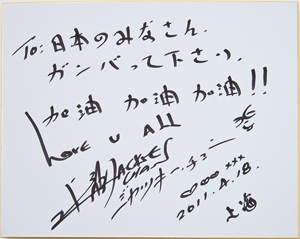 To: 日本のみなさん.
ガンバって下さい.
加油 加油 加油!!
Love U All
ジャッキー・チェン
2011.4.18.
上海